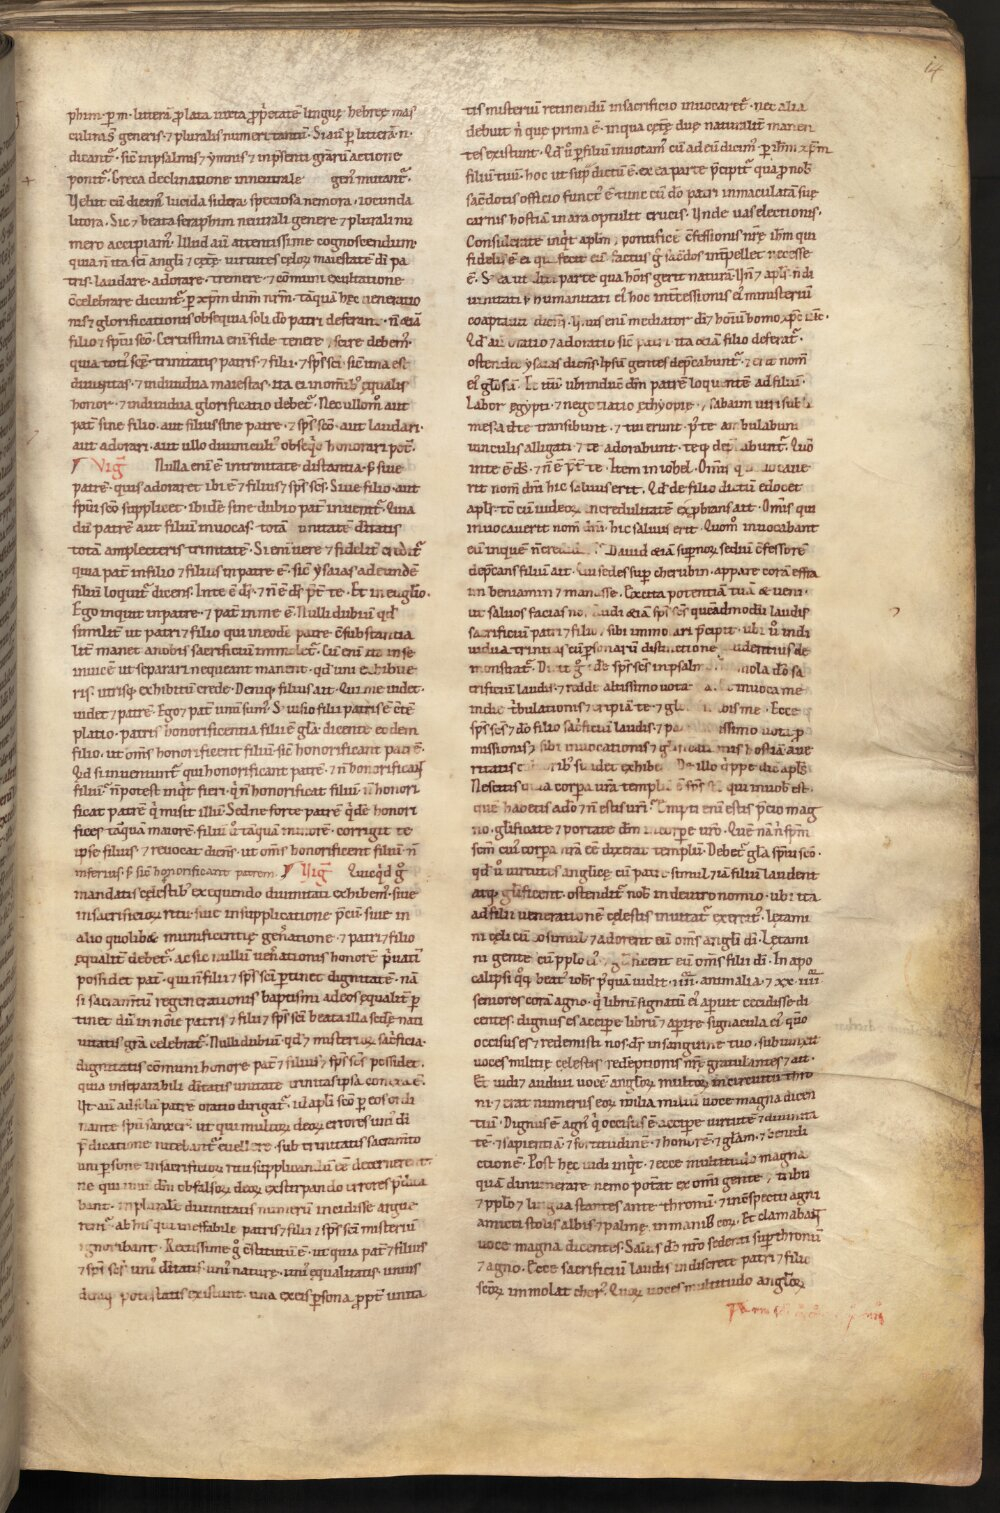 14
phim· ꝑ m· litterā ꝓlata iuxta ꝓp̄etatē linguę hebręę mas
culini s̄ generis· ⁊ pluralis numeri tantū· Si aū ꝑ litterā· n·
dicant᷑· sic̄ in psalmis ⁊ ymnis ⁊ in p̄senti gr̄arū actione
ponit᷑· greca declinatione in neutrale gen᷒ mutant᷑·
Velut cū dicim᷒ lucida sidera· speciosa nemora· iocunda
litora· Sic ⁊ beata seraphim neutrali genere ⁊ plurali nu
mero accipiam᷒· Illud aū attentissime cognoscendum·
quia n̄ ita sc̄i angl̄i ⁊ cęt̄ę virtutes cęloꝝ maiestatē dī pa
tris· laudare· adorare· tremere· ⁊ cōmuni exultatione
c̄celebrare dicunt᷑· ꝑ xp̄m dn̄m nr̄m· tāquā hęc veneratio
nis ⁊ glorificationis obsequia soli dō patri deferant· n̄ etiā
filio ⁊ sp̄ui sc̄o· Certissima eni fide tenere ⁊ scire debem᷒·
quia toti᷒ sc̄ę trinitatis patris ⁊ filii ⁊ sp̄s sc̄i· sic̄ una est
diuinitas· ⁊ indiuidua maiestas· ita ei in om̄ib᷒ equalis
honor· ⁊ indiuidua glorificatio debet᷑· Nec ullom̊ aut
pat̄ sine filio· aut filius sine patre· ⁊ sp̄s sc̄o· aut laudari·
aut adorari· aut ullo diuini cult᷒ obseq̊o honorari pot̄·
Vig̅ Nulla eni ē in trinitate distantia· s̄ siue
patrē· quis adoraret ibi ē ⁊ filius ⁊ sp̄s sc̄s· Siue filio· aut
sp̄ui sc̄o supplicet· ibidē sine dubio pat̄ inuenit᷑· Qua
dū patrē aut filiū inuocas· totā unitatē dītatis
totā amplecteris trinitatē· Si eni uere ⁊ fidelit̄ credit᷑
quia pat̄ in filio ⁊ filius in patre ē· sic̄ ysaias ad eundē
filiū loquit᷑ dicens· In te ē dſ̄· ⁊ n̄ ē dſ̄ p̄t̄ te· Et in euḡlio·
Ego inquit in patre· ⁊ pat̄ in me ē· Nulli dubiū qd̄
similit̄ ut patri ⁊ filio qui in eodē patre c̄substantia
lit̄ manet a nobis sacrificiū immolet᷑· Cū eni ita in se
inuicē ut separari nequeant manent· qd̄ uni exhibue
ris· utriq; exhibitū crede· Deniq; filius ait· Qui me uidet·
uidet ⁊ patrē· Ego ⁊ pat̄ unū sum᷒· Si uisio filii patris ē c̄tē
platio· patris honorificentia filii ē gl̄a· dicente eodem
filio· ut om̄s honorificent filiū· sic̄ honorificant patrē·
Qd̄ si inueniunt᷑ qui honorificant patrē· ⁊ n̄ honorificāt
filiū᷑ n̄ potest inq̊t fieri· q̊ n̄ honorificat filiū· n̄ honori
ficat patrē q̊ misit illū· Sed ne forte patrē q̊dē honori
fices tāquā maiorē· filiū ů tāquā minorē· corrigit te
ipse filius· ⁊ reuocat dicens· ut om̄s honorificent filiū n̄
inferius· s̄ sic̄ honorificant patrem· Vig̅ Quicq̊d g̊
mandatis cęlestib᷒ exequendo diuinitati exhibem᷒· siue
in sacrificioꝝ ritu· siue in supplicatione p̄cū· siue in
alio quolibet munificentię gen̄atione· ⁊ patri ⁊ filio
equalit̄ debet᷑· ac sic nullū uen̄ationis honorē p̄uatī
possidet pat̄· qui n̄ filii ⁊ sp̄s sc̄i ꝑtinet dignitatē· nā
si sacram̄tū regenerationis baptismi ad eos equalit̄ ꝑ
tinet dū in nōie patris ⁊ filii ⁊ sp̄s sc̄i beata illa sc̄dę nati
uitatis gr̄a celebrat᷑· Nulli dubiū· qd̄ ⁊ misterioꝝ sac̄ficia·
dignitatis cōmuni honore pat̄ ⁊ filius ⁊ sp̄s sc̄s possidet·
quia inseparabili dītatis unitate trinitas ipsa conexa ē·
Ut aū ad solū patrē oratio dirigat᷑· id apl̄i sc̄o ꝑ eos ordi
nante sp̄u sanxer̄· ut qui multoꝝ deoꝝ errores uni᷒ dī
p̄dicatione nitebant᷑ euellere· sub trinitatis sac̄nīto
uni ꝑsone in sacrificioꝝ ritu supplicandū ēē decernerent
ne qui unū dm̄ ob falsoꝝ deoꝝ exstirpando errores p̄dica
bant· in pluralē diuinitatis numerū incidisse argue
rent᷑· ab his qui ineffabile patris ⁊ filii ⁊ sp̄s sc̄i misteriū
ignorabant· Rectissime g̊ c̄stitutū ē· ut quia pat̄ ⁊ filius
⁊ sp̄s sc̄s uni᷒ dītatis· uni᷒ naturę· uni᷒ equalitatis· unius
deniq; potestatis existunt· una ex eis ꝑsona ꝓpt̄ unita
tis misteriū retinendū in sacrificio inuocaret᷑· nec alia
debuit n̄ que prima ē· in qua cęt̄ę duę naturalit̄ manen
tes existunt· Qd̄ ů ꝑ filiū inuocam᷒ cū ad eū dicim᷒ ꝑ ih̄m xp̄m
filiū tuū· hoc ut sup̄ dictū ē· ex ea parte p̄cipit᷑ qua ꝓ nob̄
sac̄dotis officio funct᷒ ē· tunc cū dō patri inmaculatā suę
carnis hostiā in ara optulit crucis· Unde uas electionis·
Considerate inq̊t aplm̄· ⁊ pontificē c̄fessionis nr̄ę ih̄m qui
fidelis ē ei qui fecit eū· factus g̊ sac̄dos int̄pellet necesse
ē· S; ea ut dixi parte qua hōis gerit naturā· Un̄ ⁊ apl̄s n̄ di
uinitati s̄ humanitati ei᷒ hoc int̄cessionis ei᷒ ministeriū
coaptauit dicens· Unus eni mediator dī ⁊ hoīū homo xp̄c ih̄c·
Qd̄ aū oratio ⁊ adoratio sic̄ patri ita etiā filio deferat᷑·
ostendit ysaias dicens· Ipsū gentes dep̄cabunt᷑· ⁊ erit nom̄
ei᷒ glōsū· Itē ubi inducit dm̄ patrē loquentē ad filiū·
Labor egypti· ⁊ negotiatio ethyopię· ⁊ sabaim uiri subli
mes· ad te transibunt· ⁊ tui erunt· p᷒ te ambulabunt
uinculis alligati ⁊ te adorabunt· teq; dep̄cabunt᷑· Qm̄
in te ē dſ̄· ⁊ n̄ ē p̄t̄ te· Item in iohel· Om̄is qui inuocaue
rit nom̄ dn̄i hic saluus erit· Qd̄ de filio dictū edocet
apl̄s· tc̄ cū iudeoꝝ incredulitatē exp̄bans ait· Om̄is qui
inuocauerit nom̄ dn̄i· hic saluus erit· Quom̊ inuocabunt
eū in quē n̄ crediderunt· Dauid etiā sup̄noꝝ sediū c̄fessorē
dep̄cans filiū ait· Qui sedes sup̄ cherubin· appare corā effra
im beniamin ⁊ manasse· Excita potentiā tuā ⁊ ueni·
ut saluos facias nos· Audi etiā sp̄s sc̄s quēadmodū laudis
sacrificiū patri ⁊ filio ⁊ sibi immolari p̄cipit· ubi ů indi
uidua trinitas cū ꝑsonarū distinctione euidentius de
monstrat᷑· Dicit g̊ ds̄ sp̄s sc̄s in psalmo· Immola dō sa
crificiū laudis· ⁊ redde altissimo uota tua· Et inuoca me
in die t̄bulationis ⁊ eripiā te ⁊ glorificabis me· Ecce
sp̄s sc̄s ⁊ dō filio sac̄ficiū laudis ⁊ patri altissimo uota ꝓ
missionis ⁊ sibi inuocationis ⁊ glorificationis hostiā aue
ritatis cultorib᷒ suadet exhiberi· De illo q̊ppe dic̄ apl̄s·
Nescitis quia corpora ur̄a templū ē sp̄s sc̄i qui in uob̄ est·
quē habetis a dō ⁊ n̄ estis ur̄i· Empti eni estis p̄cio mag
no· glīficate ⁊ portate dm̄ in corꝑe ur̄o· Quē nā n̄ sp̄m
sc̄m cui᷒ corꝑa nr̄a ēē dixerat templū· Debet᷑ gl̄a sp̄ui sc̄o·
qd̄ ů uirtutes anglicę cū patre simul ⁊ iā filiū laudent
atq; glīficent· ostendit᷑ nob̄ in deutronomio· ubi ita
ad filii uenerationē cęlestis inuitat᷑ exercit᷒· Lętami
ni cęli cū eo simul ⁊ adorent eū om̄s angl̄i dī· Lętami
ni gentes cū pplo ei᷒ ⁊ glīficent eū om̄s filii dī· In apo
calipsi q̊q; beat᷒ ioh̄s p᷒quā uidit· iiii· animalia· ⁊ xx· iiii·
seniores corā agno· q̊ librū signatū ei᷒ aꝑuit cecidisse di
centes· dignus es accipe librū ⁊ aꝑire signacula ei᷒ qm̄
occisus es ⁊ redemisti nos dō in sanguine tuo· subiunxit
uoces militię cęlestis redēptionis nr̄ę gratulantes ⁊ ait·
Et uidi ⁊ audiui uocē angl̄oꝝ multoꝝ in circuitu thro
ni· ⁊ erat numerus eoꝝ milia miliū uoce magna dicen
tiū· Dignus ē agn᷒ q̊ occisus ē accipe uirtutē ⁊ diuinita
tē· ⁊ sapientiā ⁊ fortitudinē· ⁊ honorē· ⁊ gl̄am· ⁊ benedi
ctionē· Post hęc uidi inq̊t· ⁊ ecce multitudo magna
quā dinumerare nemo potat ex om̄i gente ⁊ tribu
⁊ pplo ⁊ lingua stantes ante thronū· ⁊ in c̄spectu agni
amicti stolis albis ⁊ palmę in manib᷒ eoꝝ· Et clamabāt
uoce magna dicentes· Salus dō nr̄o sedenti sup̄ thronū
⁊ agno· Ecce sacrificiū laudis indiscrete patri ⁊ filio
sc̄oꝝ immolat chor᷒· Quoꝝ uoces multitudo angl̄oꝝ